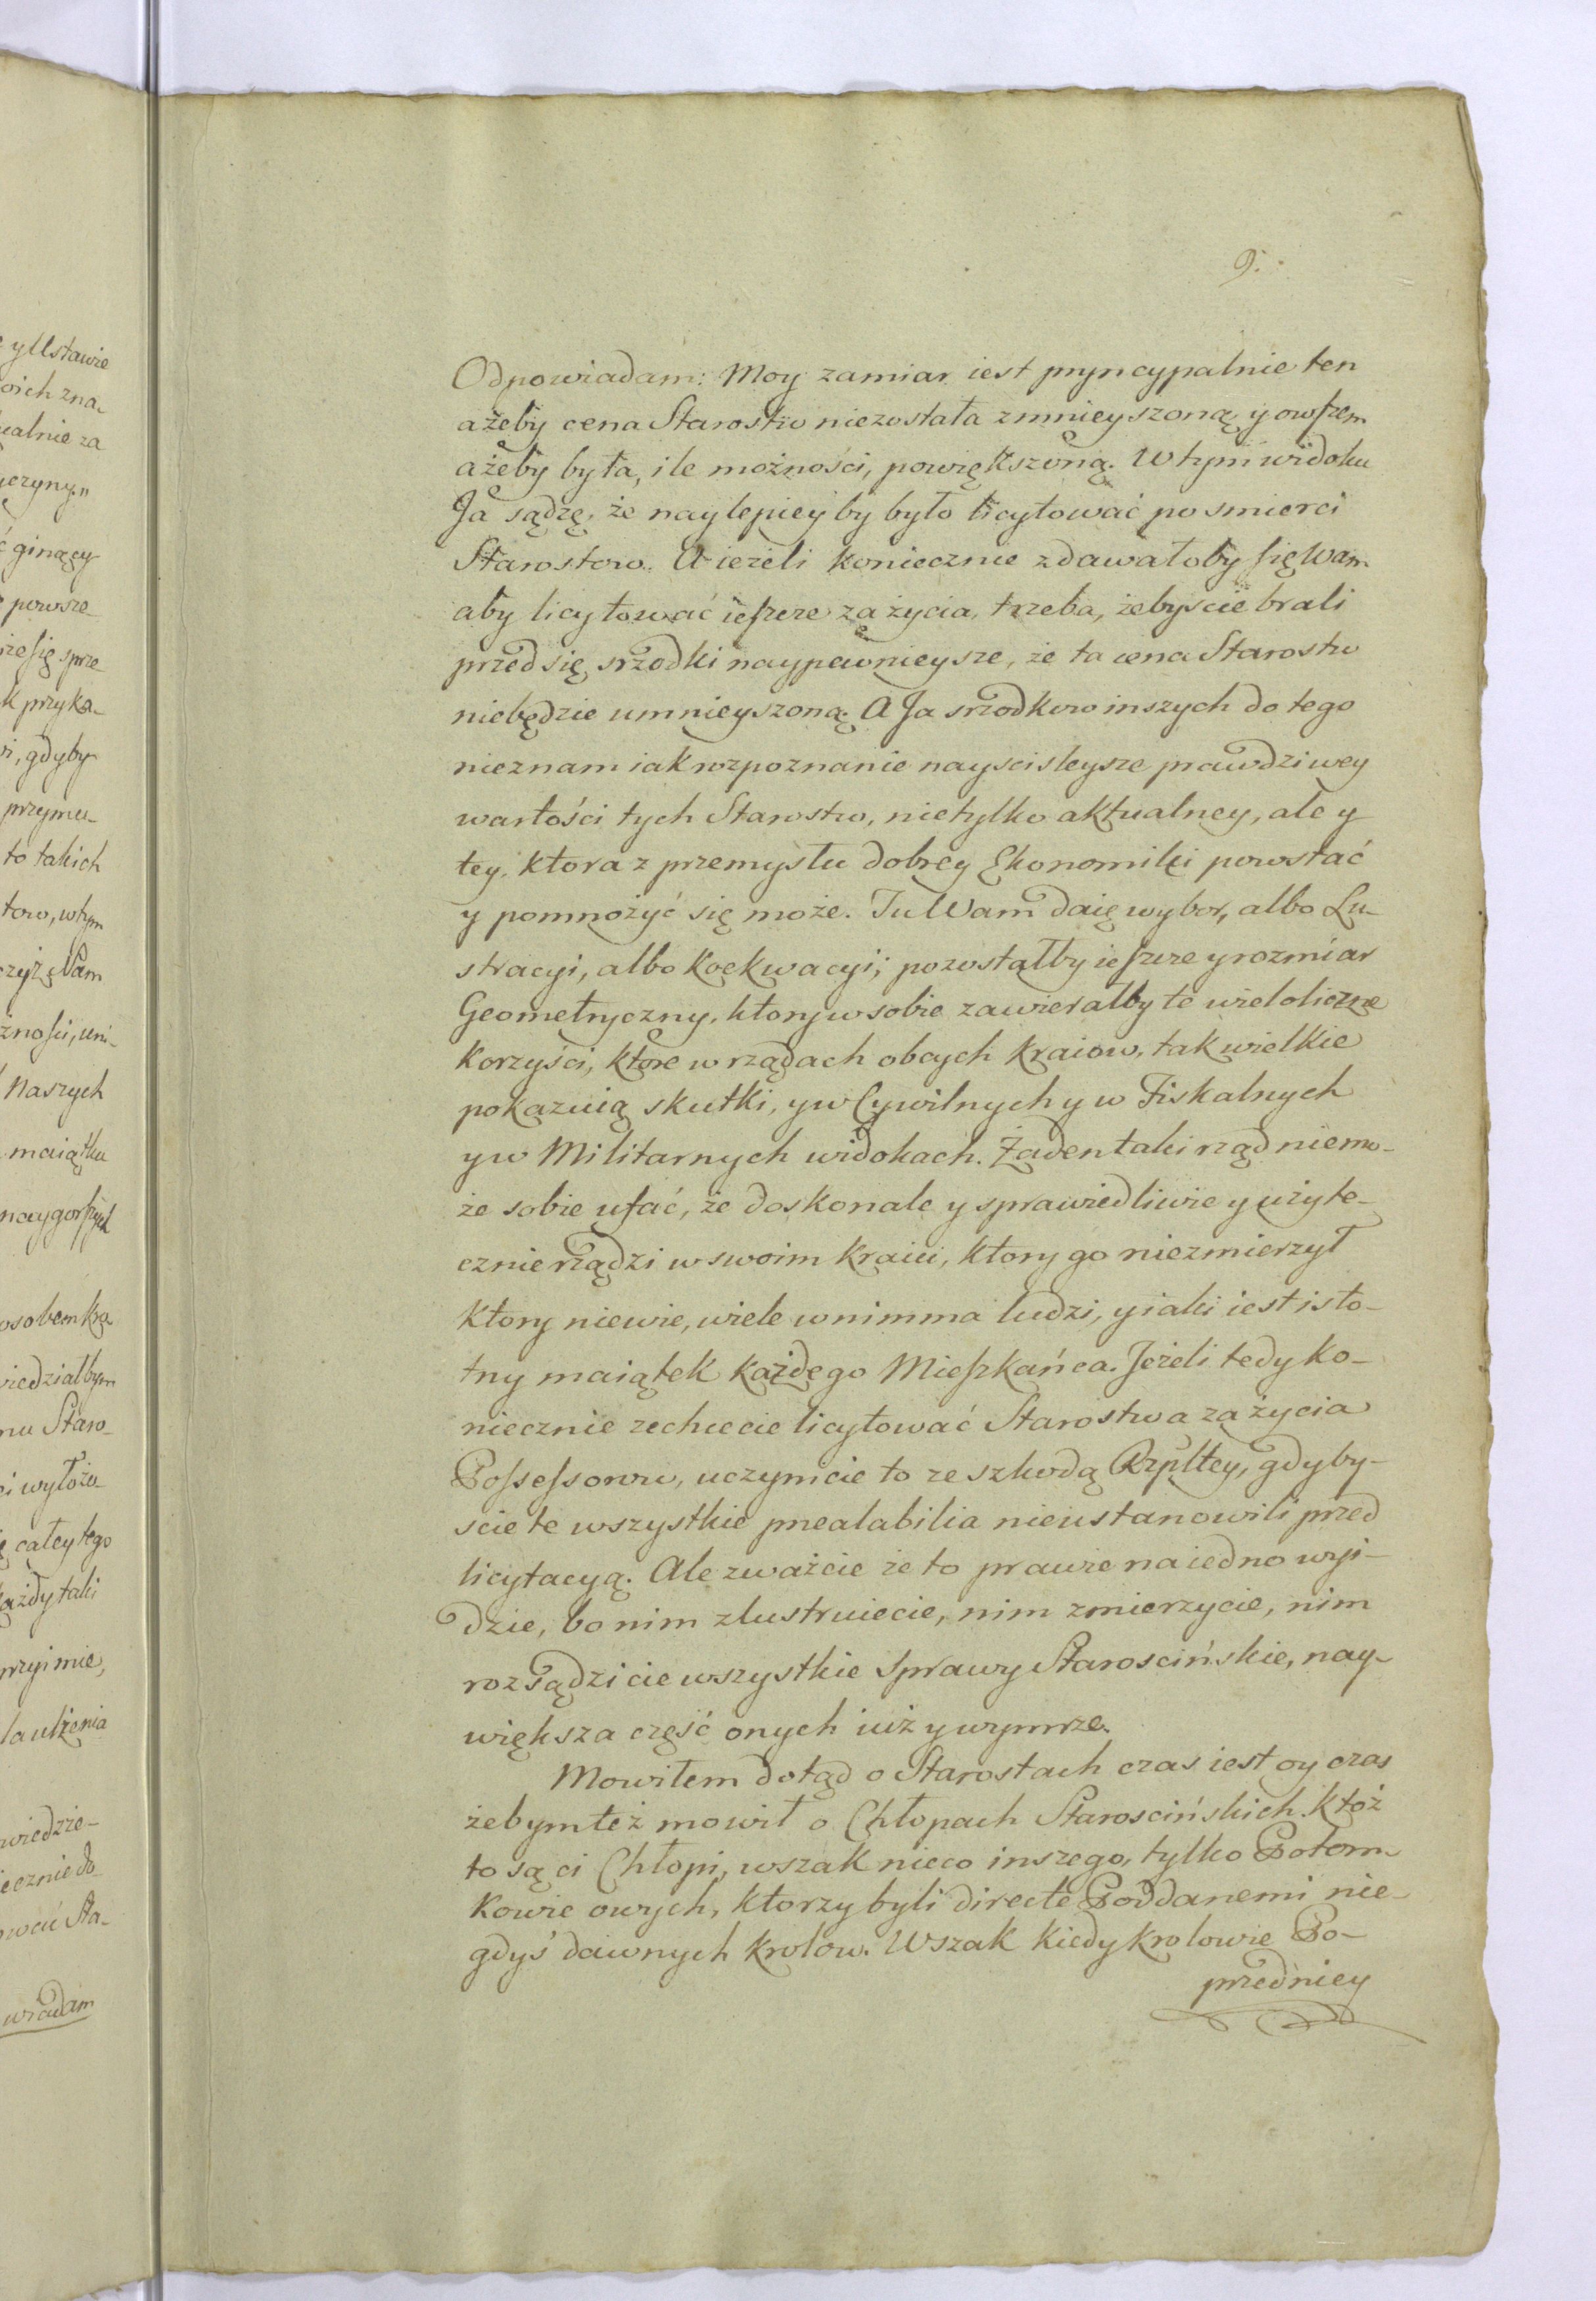 e y Ustawie
oich zna-
ualnie za
yczyny,,
ć ginący
powsze-
że się sprze-
k przyka-
i, gdyby
przymu-
to takich
tow, w tym
czyż Nam
żności, uni-
Naszych
maiątku
naygorszych
osobem kra
wiedziałbym
mu Staro-
i wyłożo-
ę całey tego
każdy taki
przyimie,
la ulżenia
wiedzie-
iecznie do-
ować Sta-
wiadam
9.
Odpowiadam: Moy zamiar iest pryncypalnie ten
ażeby cena Starostw niezostała zmnieyszoną y owszem
ażeby była, ile możności, powiększoną. W tym widoku
Ja sądzę, że naylepiey by było licytować po smierci
Starostow. A ieżeli koniecznie zdawałoby się Wam
aby licytować ieszcze za życia, trzeba, żebyscie brali
przed się srzodki naypewnieysze, że ta cena Starostw
niebędzie umnieyszoną. A Ja srzodkow inszych do tego
nieznam iak rozpoznanie nayscisleysze prawdziwey
wartości tych Starostw, nietylko aktualney, ale y
tey, ktora z przemysłu dobrey Ekonomiki powstać
y pomnożyć się może. Tu Wam daię wybor, albo Lu-
stracyi, albo Koekwacyi; pozostałby ieszcze y rozmiar
Geometryczny, ktory w sobie zawierałby te wieloliczne
korzyści, ktore w rządach obcych kraiow, tak wielkie
pokazuią skutki, y w Cywilnych y w Fiskalnych
y w Militarnych widokach. Żaden taki rząd niemo-
że sobie ufać, że doskonale y sprawiedliwie y użyte-
cznie rządzi w swoim kraiu, ktory go niezmierzył
ktory niewie, wiele w nim ma ludzi, y iaki iest isto-
tny maiątek każdego Mieszkańca. Jeżeli tedy ko-
niecznie zechcecie licytować Starostwa za życia
Possessorow, uczynicie to ze szkodą Rzpltey, gdyby-
scie te wszystkie prealabilia nieustanowili przed
licytacyą. Ale zważcie że to prawie na iedno wyi-
dzie, bo nim zlustruiecie, nim zmierzycie, nim
rozsądzicie wszystkie sprawy Staroscińskie, nay-
większa część onych iuż y wymrze.
Mowiłem dotąd o Starostach czas iest oy czas
żebym też mowił o Chłopach Staroscińskich. Ktoż
to są ci Chłopi, wszak nieco inszego, tylko Potom-
kowie owych, ktorzy byli directe Poddanemi nie-
gdyś dawnych krolow. Wszak kiedy krolowie Po-
przedniey